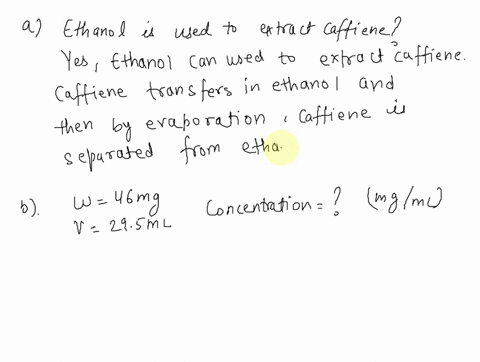 a) Ethanol is used to extract caffiene?
Yes, Ethanol can used to extract caffiene.
Caffiene transfers in ethanol and
then by evaporation, caffiene is
separated from etha
b). W = 46mg
V = 29.5mL
Concentration = ? (mg/mL)